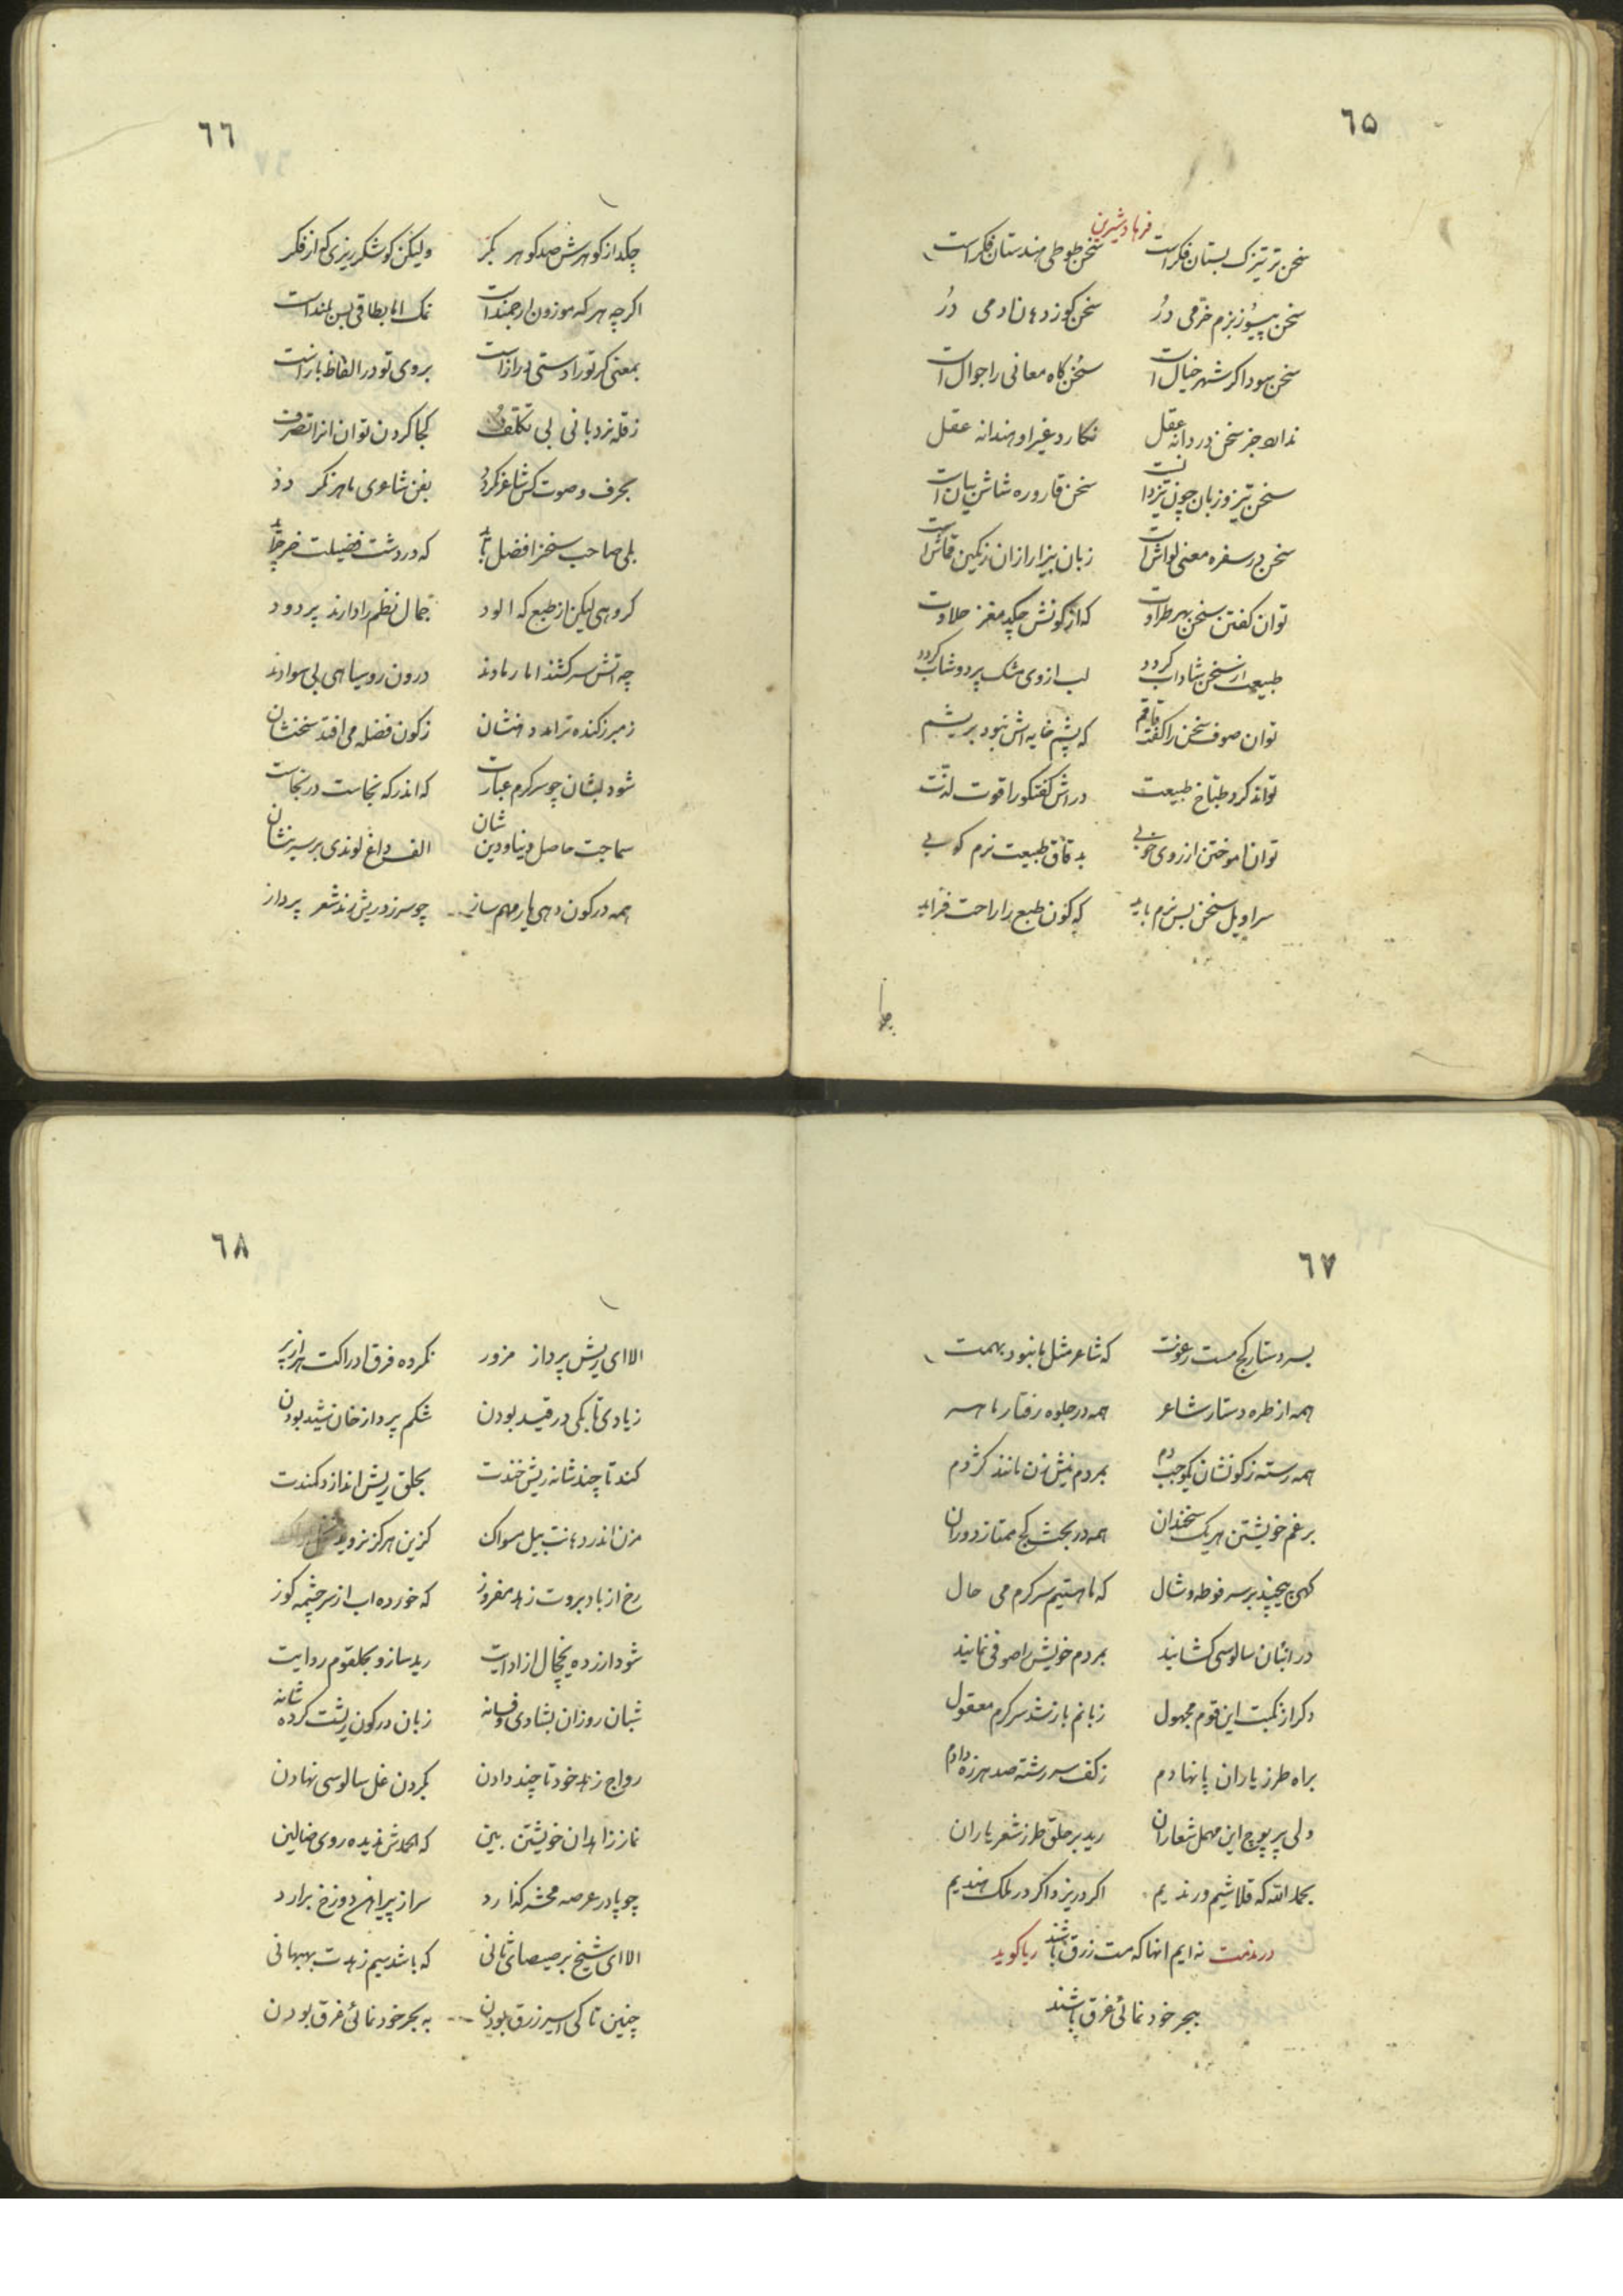 ٦٥
فرهاد شیرین
سخن تر تیزک بستان فکر است سخن طوطی هندستان فکر است
سخن پیسوز بزم خرمی در سخن کوز دهان ادمی در
سخن سوداکر شهر خیال است سخن کاه معانی را جوال است
نداند جز سخن دردانه عقل نکارد غیر او هندانه عقل
سخن تیز و زبان چون تیزدانست سخن قاروره شاش بیان است
سخن در سفره معنی لواش است زبان بیزار ازان رنکین قماش است
توان کفتن سخن بهر طراوت که از کونش چکد مغز حلاوت
طبیعت از سخن شاداب کردد لب از وی مشک پر دوشاب کردد
توان صوف سخن را کفت قاقم که پشم خایه اش نبود بریشم
تواند کرد طباخ طبیعت در اش کفتکو را قوت لذت
توان اموختن از روی خوبی بدقاق طبیعت نرم کوبی
سراویل سخن بس نرم باید که کون طبع را راحت فزاید
٦٦
چکد از کوهرش صد کوهر بکر ولیکن کو شکرریزی که از فکر
اکرچه هر که موزون ارجمند است نمک اما بطاقی بس بلند است
بمعنی کر تو را دستی دراز است بروی تو در الفاظ باز است
زقله نردبانی بی تکلف کجا کردن توان انرا تصرف
بحرف و صوت کس شاعر نکردد بفن شاعری ماهر نکردد
بلی صاحب سخن را فضل باید که در دشت فضیلت خر چراید
کروهی لیکن از طبع که الود جمال نظم را دارند پر دود
چه اتش سرکشند اما رمادند درون روسیاهی بی سوادند
ز مبرز کنده تر امد دهنشان ز کون فضله می افتد سخنشان
شود لبشان چو سرکرم عبارت که اندر که نجاست در نجاست
سماجت حاصل دنیا و دین شان الف داغ لوندی بر سرینشان
همه در کون دهی یار مهم ساز چو سرز در ریش رند شعر پرداز
٦٧
بسر دستار کج مست رعونت که شاعر مثل ما نبود بهمت
همه از طره دستار شاعر همه در جلوه رفتار ماهر
همه رسته ز کونشان یکوجب دم بمردم نیش زن مانند کژدم
برغم خویشتن هر یک سخندان همه در بحث کج ممتاز دوران
کهی پیچند بر سر فوطه و شال که ما هستیم سرکرم می حال
در انبان سالوسی کشایند بمردم خویش را صوفی نمایند
دکر از نکبت این قوم مجهول زبانم باز شد سرکرم معقول
براه طرز یاران پا نهادم ز کف سررشته صد هرزه دادم
ولی پر پوچ این مهمل شعاران رید بر حلق طرز شعر یاران
بحمد الله که قلاشیم و رندیم اکر در یزد اکر در ملک هندیم
در مذمت نه ایم انها که مست زرق باشند ریا کوید
ببحر خود نمائی غرق باشند
٦٨
الا ای ریش پرداز مزور نکرده فرق ادراکت سر از پر
زیادی تا بکی در قید بودن شکم پرداز خان شید بودن
کند تا چند شانه ریش خندت بحلق ریش اندازد کمندت
مزن اندر دهانت بیل مسواک کزین هرکز نروید
رخ از باد بروت زهد مفروز که خورده اب از سرچشمه کوز
شود ارزده یخچال از ادایت رید ساز و بحلقوم ردایت
شبان روزان بشادی و فسانه زبان در کون ریشت کرده شانه
رواج زهد خود تا چند دادن بکردن غل سالوسی نهادن
نماز زاهدان خویشتن بین که الحمدش ندیده روی ضالین
چو پا در عرصه محشر کذارد سر از پیراهن دوزخ برارد
الا ای شیخ برصیصای ثانی که باشد سیم زهدت بهبهانی
چنین تا کی اسیر زرق بودن به بحر خود نمائی غرق بودن